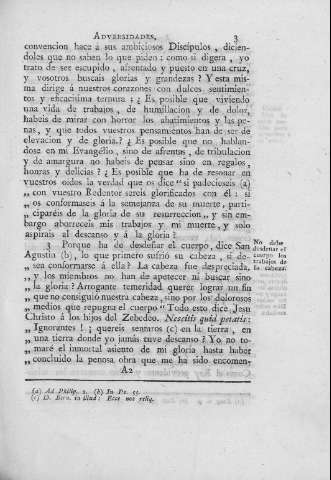 ADVERSIDADES, 3
convencion hace á sus ambiciosos Discípulos, dicien-
doles que no saben lo que piden: como si digera, yo
trato de ser escupido, afrentado y puesto en una cruz,
y vosotros buscais glorias y grandezas? Y esta mis-
ma dirige á nuestros corazones con dulces sentimien-
tos y eficacisima ternura: ¿Es posible que viviendo
una vida de trabajos, de humillacion y de dolor,
habeis de mirar con horror los abatimientos y las pe-
nas, y que todos vuestros pensamientos han de ser de
elevacion y de gloria? ¿Es posible que no hablan-
dose en mi Evangélio, sino de afrentas, de tribulacion
y de amargura no habeis de pensar sino en regalos,
honras y delicias? ¿Es posible que ha de resonar en
vuestros oidos la verdad que os dice "si padecieseis (a)
„ con vuestro Redentor sereis glorificados con él: si
„ os conformaseis á la semejanza de su muerte, parti-
„ ciparéis de la gloria de su resurreccion" y sin em-
bargo aborreceis mis trabajos y mi muerte, y solo
aspirais al descanso y á la gloria?
3 Porque ha de desdeñar el cuerpo, dice San
Agustin (b), lo que primero sufrió su cabeza, si de-
sea conformarse á ella? La cabeza fue despreciada,
„ y los miembros no han de apetecer ni buscar sino
„ la gloria? Arrogante temeridad querer lograr un fin
„ que no consiguió nuestra cabeza, sino por los dolorosos
„ medios que repugna el cuerpo" Todo esto dice Jesu
Christo á los hijos del Zebedeo. Nescitis quid petatis:
„ Ignorantes!; quereis sentaros (c) en la tierra, en
„ una tierra donde yo jamás tuve descanso? Yo no to-
„ maré el inmortal asiento de mi gloria hasta haber
„ concluido la penosa obra que me ha sido encomen-
No debe
desdeñar el
cuerpo los
trabajos de
la cabeza.
A2
(a) Ad Philip. 2. (b) In Ps.
(c) D. Bern. in illud: Ecce nos reliq.